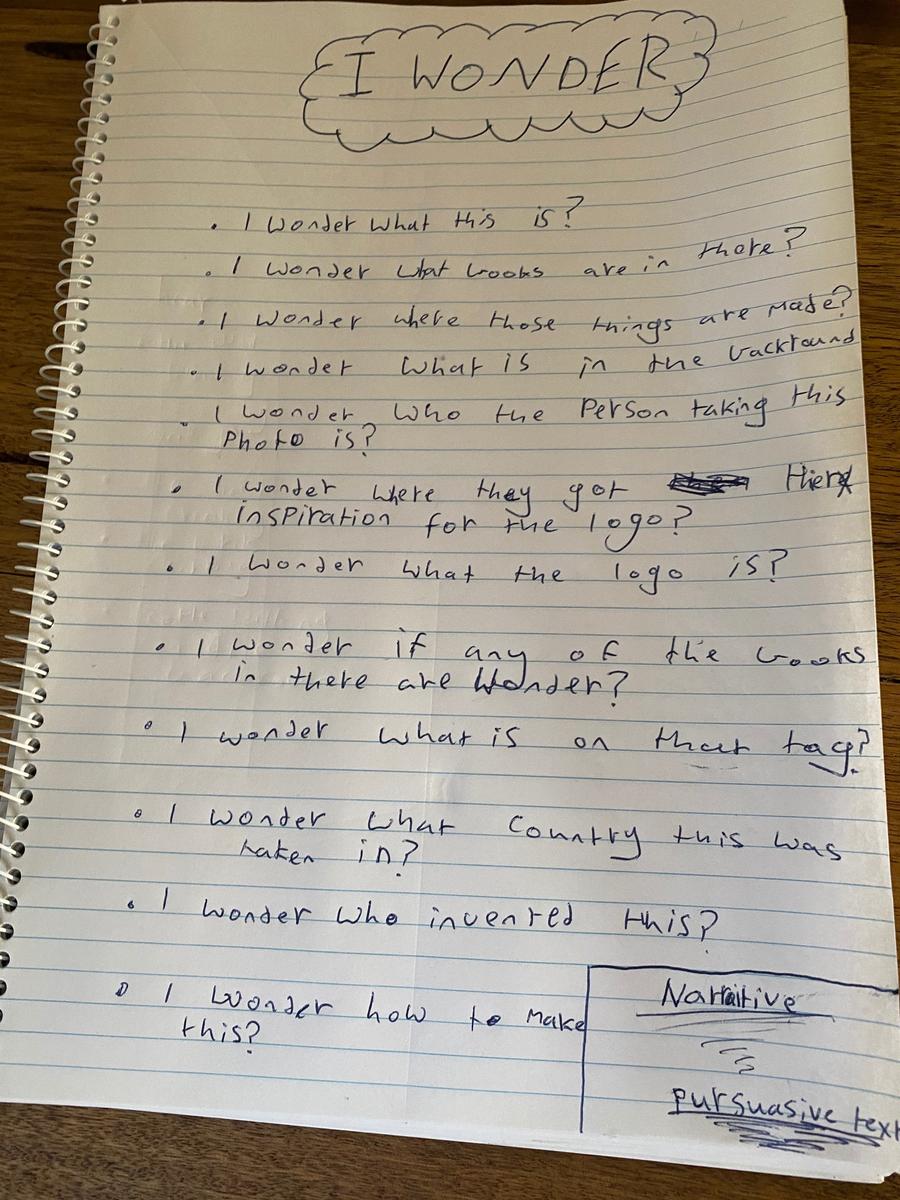 I WONDER
. I wonder what this is?
. I wonder what books are in there?
. I wonder where those things are made?
. I wonder what is in the backround
. I wonder who the person taking this
photo is?
. I wonder where they got their
inspiration for the logo?
. I wonder what the logo is?
. I wonder if any of the books
in there are Wonder?
. I wonder what is on that tag?
. I wonder what country this was
taken in?
. I wonder who invented this?
. I wonder how to make
this?
Narraitive
pursuasive text